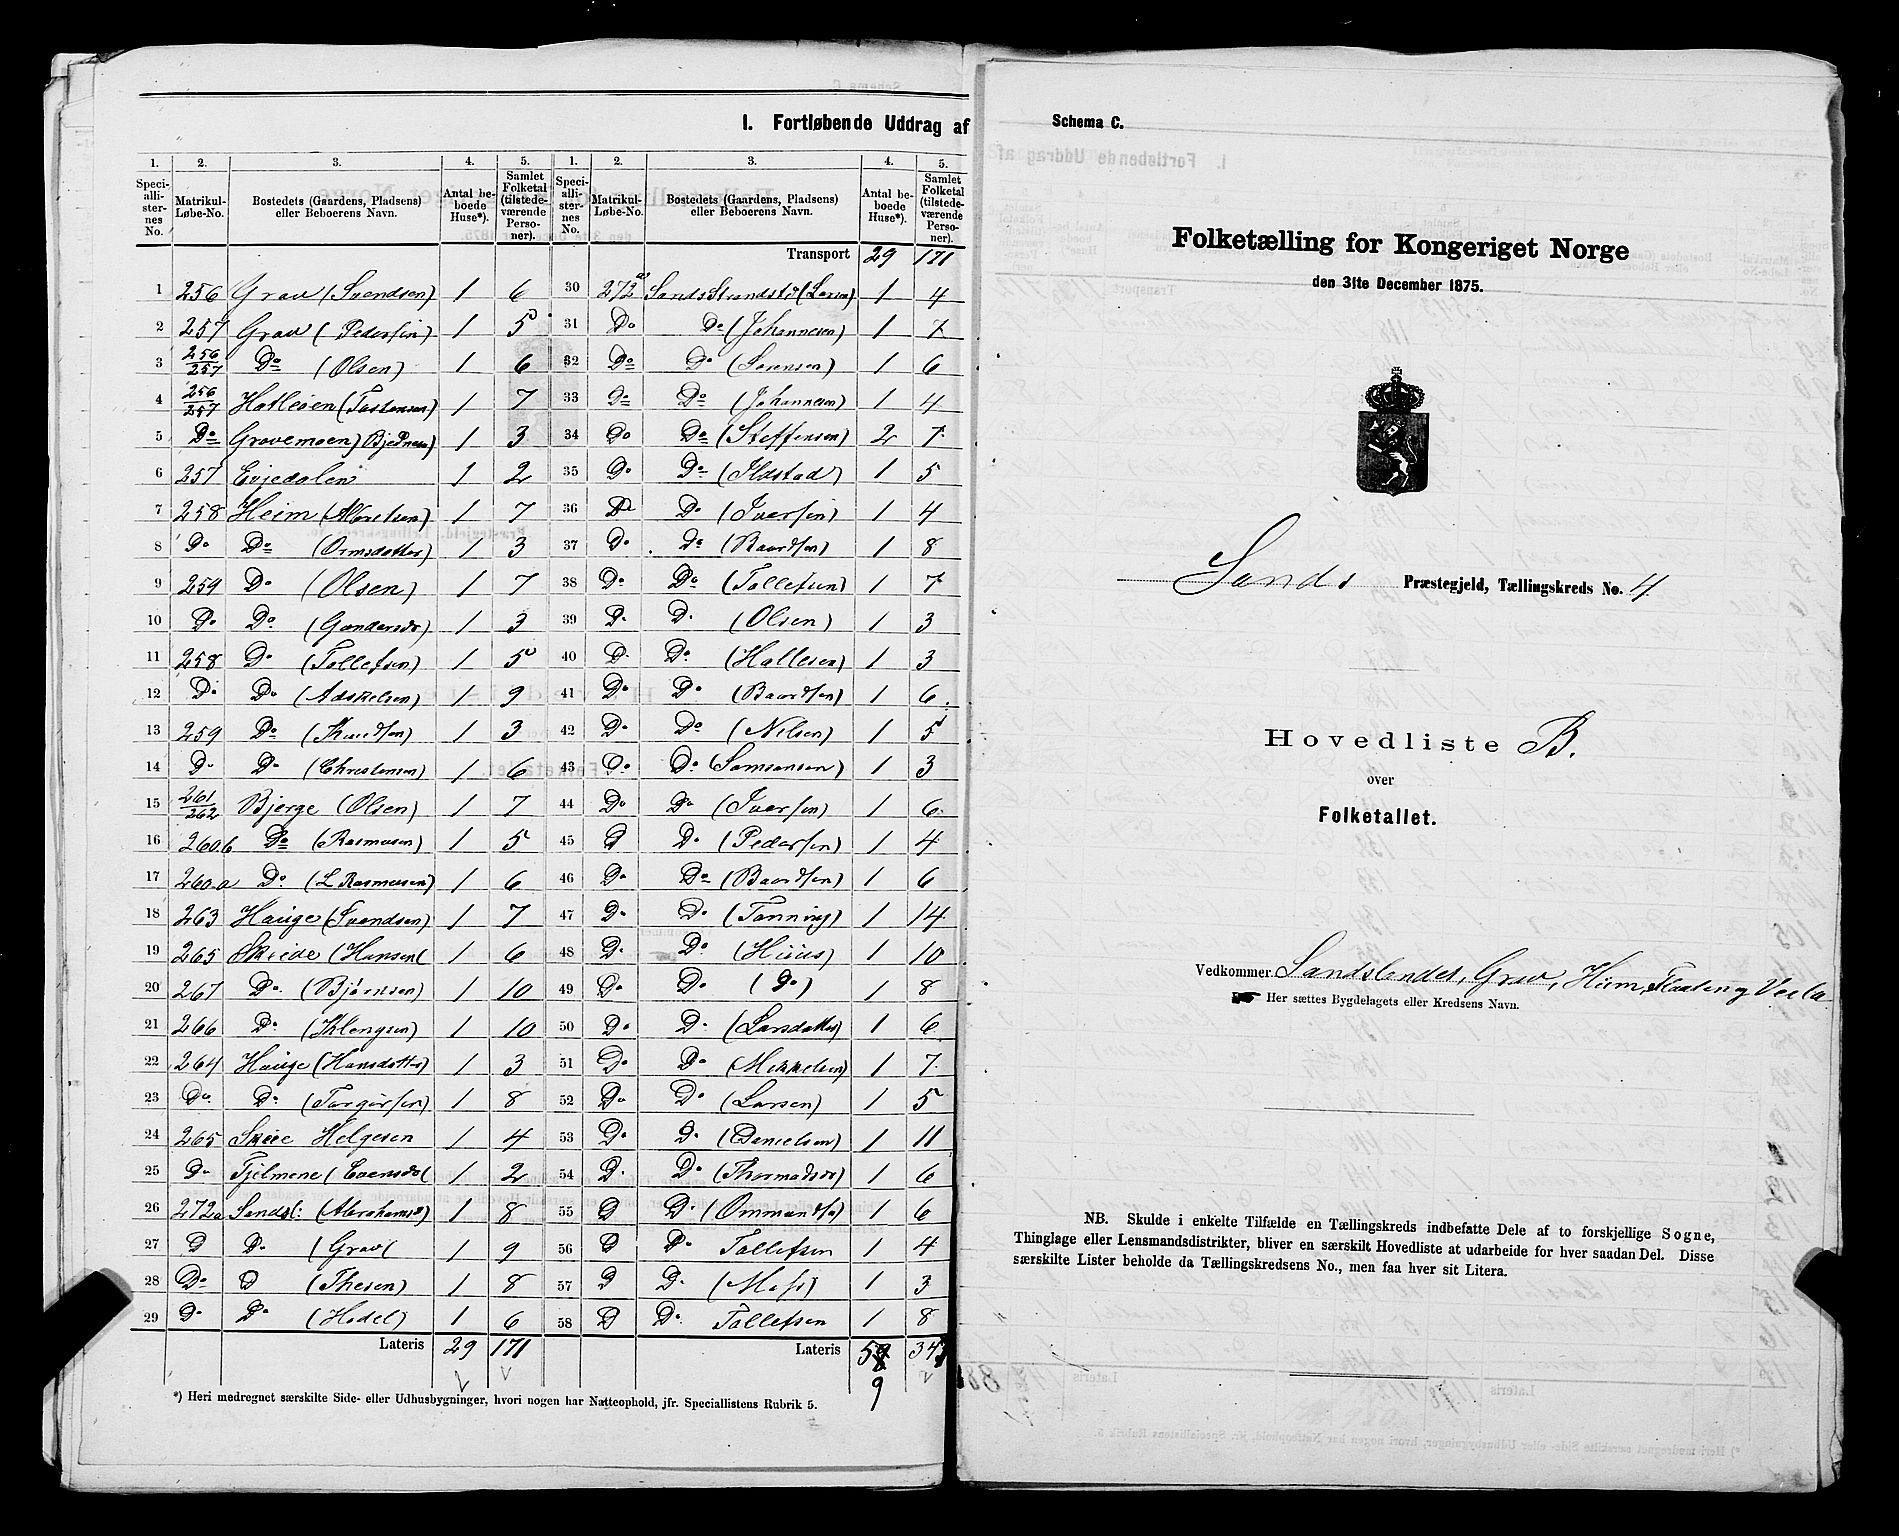 I. Fortløbende Uddrag af
1. 2. 3. 4. 5. 1. 2. 3. 4. 5.
Speciallisternes No. Matrikul-Løbe-No. Bostedets (Gaardens, Pladsens) eller Beboerens Navn. Antal beboede Huse*). Samlet Folketal (tilstedeværende Personer). Speciallisternes No. Matrikul-Løbe-No. Bostedets (Gaardens, Pladsens) eller Beboerens Navn. Antal beboede Huse*). Samlet Folketal (tilstedeværende Personer).
Transport 29 171
1 256 Grav (Svendsen) 1 6 30 272 a Sands Strandst (Larsen) 1 4
2 257 Grav (Pedersen) 1 5 31 Do Do (Johannesen) 1 7
3 256/257 Do (Olsen) 1 6 32 Do Do (Sørensen) 1 6
4 256/257 (Tostensen) 1 7 33 Do Do (Johannesen) 1 4
5 Do Gravemoen 1 3 34 Do Do (Steffensen) 2 7
6 257 Eijedalen 1 2 35 Do Do (Ilostad) 1 5
7 258 Heim 1 7 36 Do Do (Iversen) 1 4
8 Do Do (Ormsdatter) 1 3 37 Do Do (Baardsen) 1 8
9 259 Do (Olsen) 1 7 38 Do Do (Tollefsen) 1 7
10 Do Do (Gundersd) 1 3 39 D. D. (Olsen) 1 3
11 258 Do (Tollefsen) 1 5 40 D. Do (Hallesen) 1 3
12 Do Do (Adskelsen) 1 9 41 Do Do (Baardsen) 1 6
13 259 Do (Knudsen) 1 3 42 Do Do (Nilsen) 1 5
14 Do Do (Christensen) 1 6 43 Do Do (Samsonsen) 1 3
15 261/262 Bjerge (Olsen) 1 7 44 Do Do (Iversen) 1 6
16 260b Do (Rasmusen) 1 5 45 D Do (Pedersen) 1 4
17 260a Do (L Rasmusen) 1 6 46 Do Do (Baardsen) 1 6
18 263 Hauge (Svendsen) 1 7 47 Do D. (Tønning) 1 14
19 265 Skeide (Hansen( 1 6 48 D. Do (Huus) 1 10
20 267 Do. (Bjørnsen) 1 10 49 Do Do (Do) 1 8
21 266 Do (Klengsen) 1 10 50 Do D. (Larsdatter) 1 6
22 264 Hauge (Hansdatter) 1 3 51 Do Do (Mikkelsen) 1 7
23 Do Do (Torgersen) 1 8 52 Do Do (Larsen) 1 5
24 265 Skeie Helgesen 1 4 53 Do D. (Danielsen) 1 11
25 Do Tjelmene 1 2 54 D. Do (Thormodsd) 1 6
26 272a Sandsl: (Abrahams) 1 8 55 D D. (Ommundsd) 1 6
27 D Do (Grav( 1 9 56 D Do Tollefsen 1 4
28 Do D (Thesen) 1 8 57 D D. 1 3
29 Do Do (Hodel) 1 6 58 D Do Tollefsen 1 8
Lateris 29 171 Lateris 59 343
9
*) Heri medregnet særskilte Side- eller Udhusbygninger, hvori nogen har Natteophold, jfr. Speciallistens Rubrik 5.
Schema C.
Folketælling for Kongeriget Norge
den 31te December 1875.
Sands Præstegjeld, Tællingskreds No. 4.
Hovedliste B.
over
Folketallet.
Vedkommer Sandslandet, Grav, Heim,
Her sættes Bygdelagets eller Kredsens Navn.
NB. Skulde i enkelte Tilfælde en Tællingskreds indbefatte Dele af to forskjellige Sogne,
Thinglage eller Lensmandsdistrikter, bliver en særskilt Hovedliste at udarbeide for hver saadan Del. Disse
særskilte Lister beholde da Tællingskredsens No., men faa hver sit Litera.